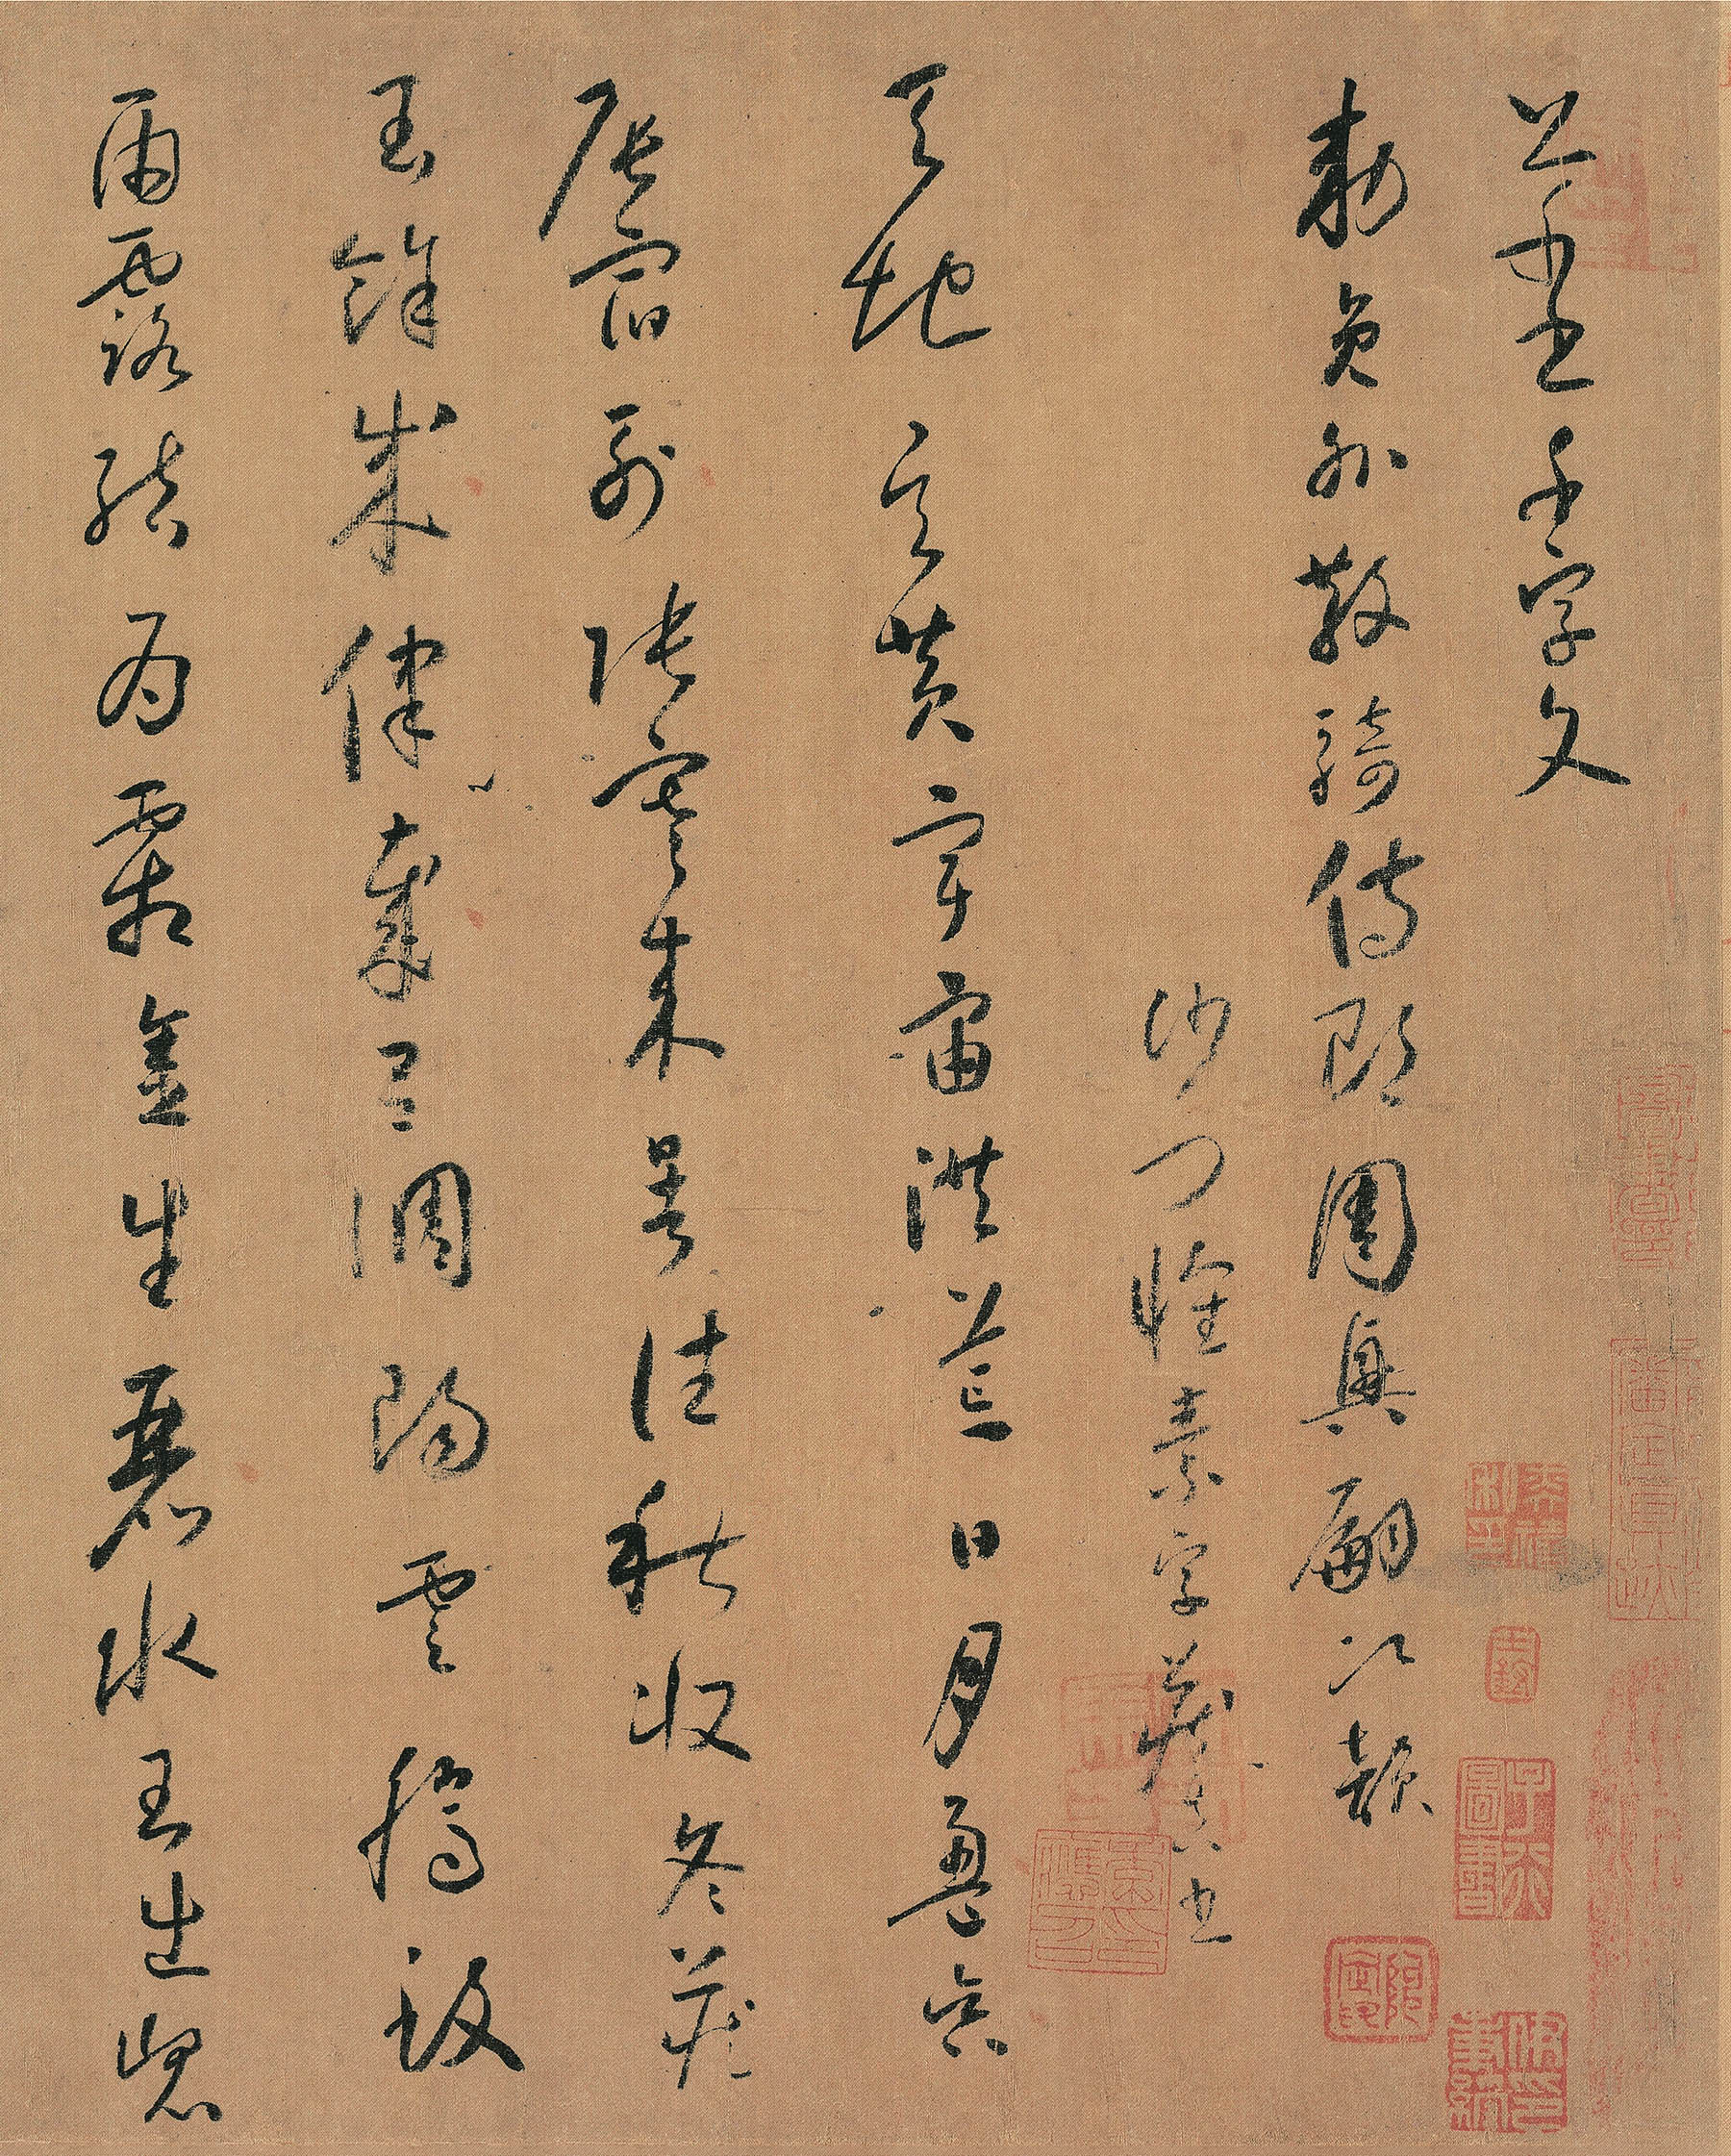 草書千字文
敕員外散騎侍郎周興嗣次韻
沙門懷素字藏真也
天地玄黃宇宙洪荒日月盈昃
辰宿列張寒來暑往秋收冬藏
閏餘成律歲呂調陽雲騰致
雨露結為霜金生麗水玉出崑